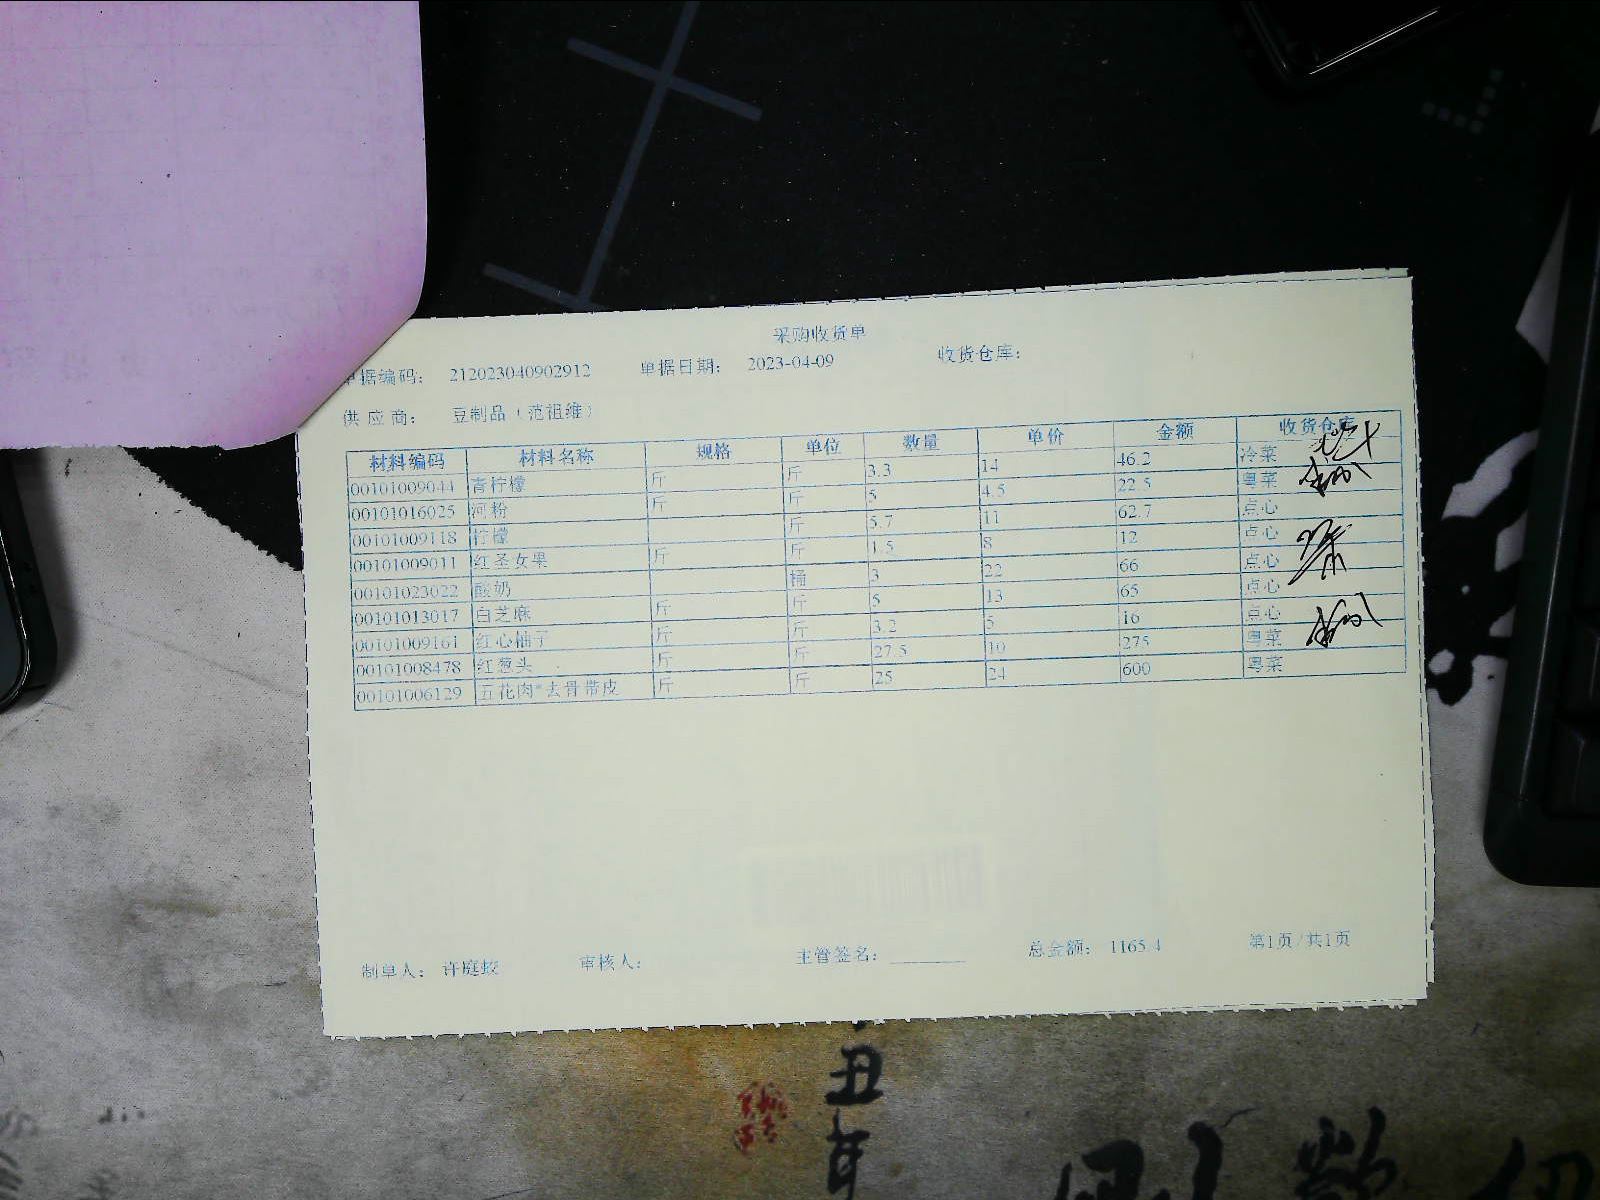 采购收货单
单据编码： 212023040902912 单据日期： 2023-04-09 收货仓库：
供应商： 豆制品（范祖维）
材料编码 材料名称 规格 单位 数量 单价 金额 收货仓库
00101009044 青柠檬 斤 斤 3.3 14 46.2 冷菜
00101016025 河粉 斤 斤 5 4.5 22.5 粤菜
00101009118 柠檬 斤 5.7 11 62.7 点心
00101009011 红圣女果 斤 斤 1.5 8 12 点心
00101023022 酸奶 桶 3 22 66 点心
00101013017 白芝麻 斤 斤 5 13 65 点心
00101009161 红心柚子 斤 斤 3.2 5 16 点心
00101008478 红葱头 斤 斤 27.5 10 275 粤菜
00101006129 五花肉*去骨带皮 斤 斤 25 24 600 粤菜
制单人： 许庭蛟 审核人： 主管签名： 总金额： 1165.4 第1页/共1页
丑年